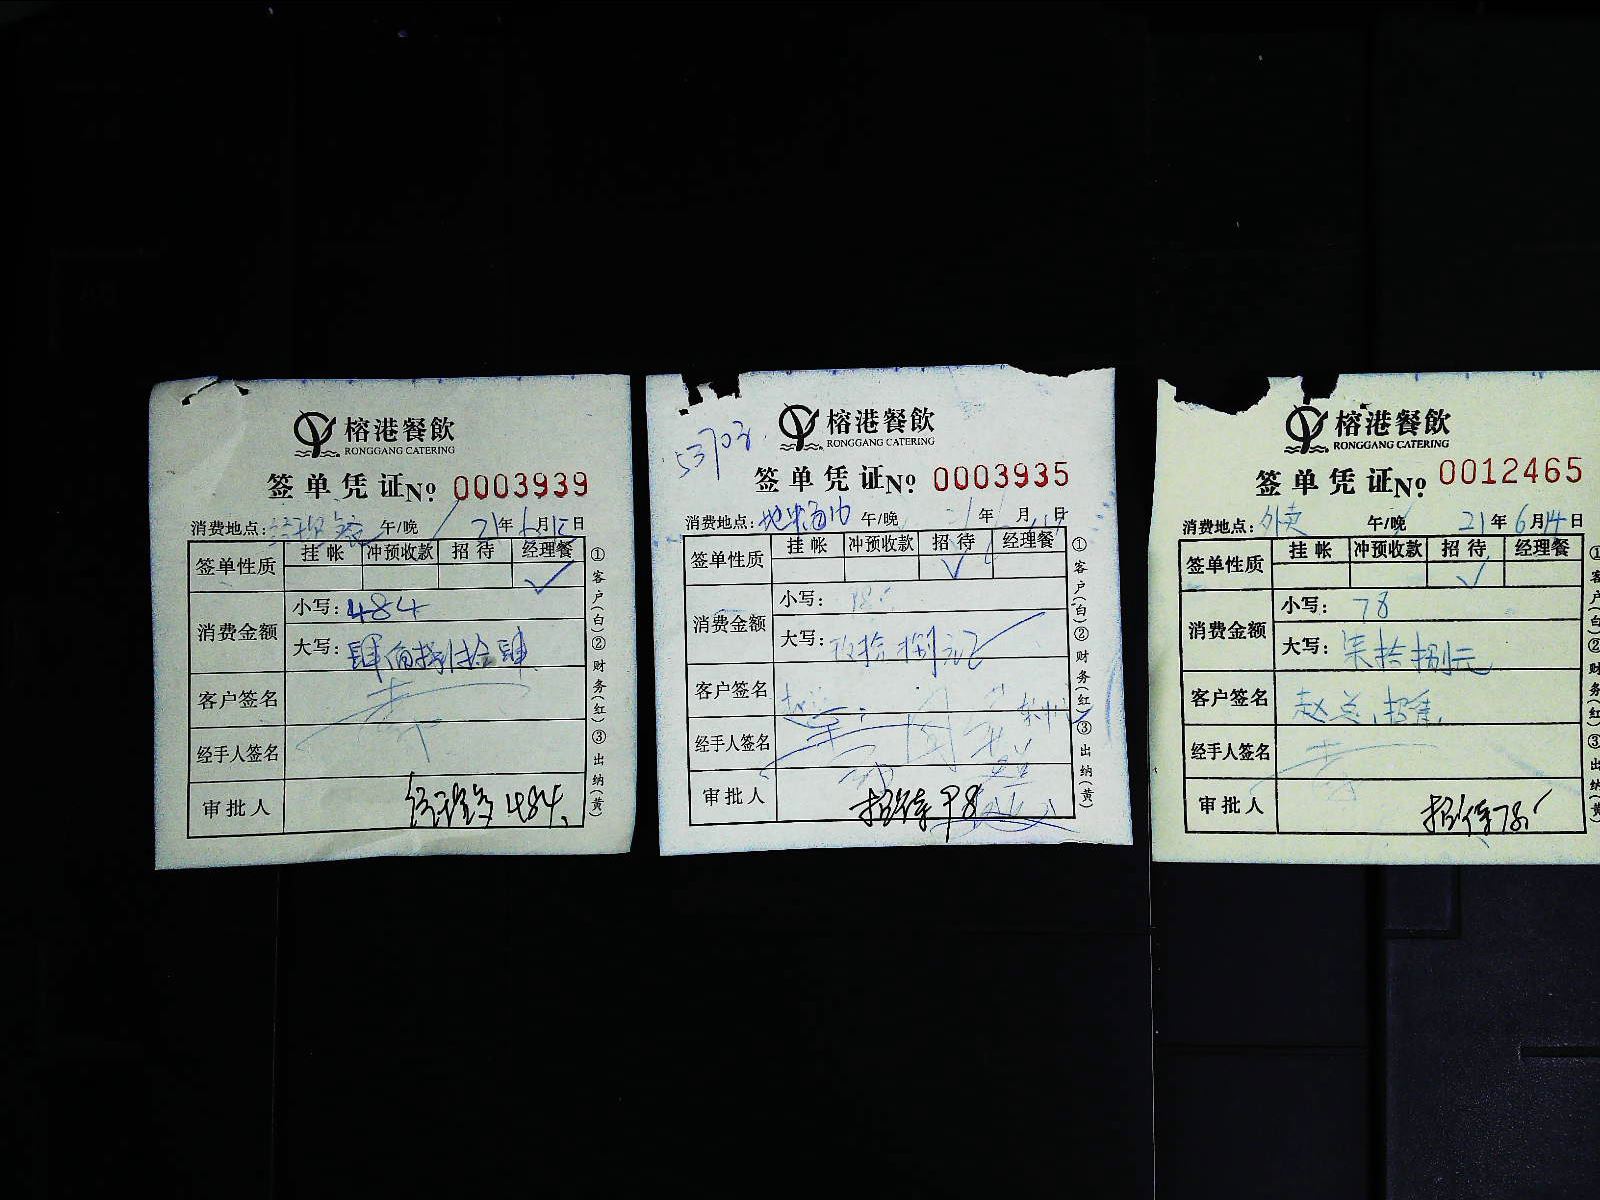 榕港餐飲
RONGGANG CATERING
签单凭证No. 0003939
消费地点: 午/晚 21年6月15日
签单性质 挂帐 冲预收款 招待 经理餐
✓
消费金额 小写: 484
大写: 肆佰捌拾肆
客户签名
经手人签名
审批人 经理餐 484
①客户(白)②财务(红)③出纳(黄)
榕港餐飲
RONGGANG CATERING
签单凭证No. 0003935
消费地点: 午/晚 年 月 日
签单性质 挂帐 冲预收款 招待 经理餐
✓
消费金额 小写:
大写: 玖拾捌元正
客户签名
经手人签名
审批人 招待 98
①客户(白)②财务(红)③出纳(黄)
榕港餐飲
RONGGANG CATERING
签单凭证No. 0012465
消费地点: 外卖 午/晚 21年6月14日
签单性质 挂帐 冲预收款 招待 经理餐
✓
消费金额 小写: 78
大写: 柒拾捌元
客户签名 赵总
经手人签名
审批人 招待78